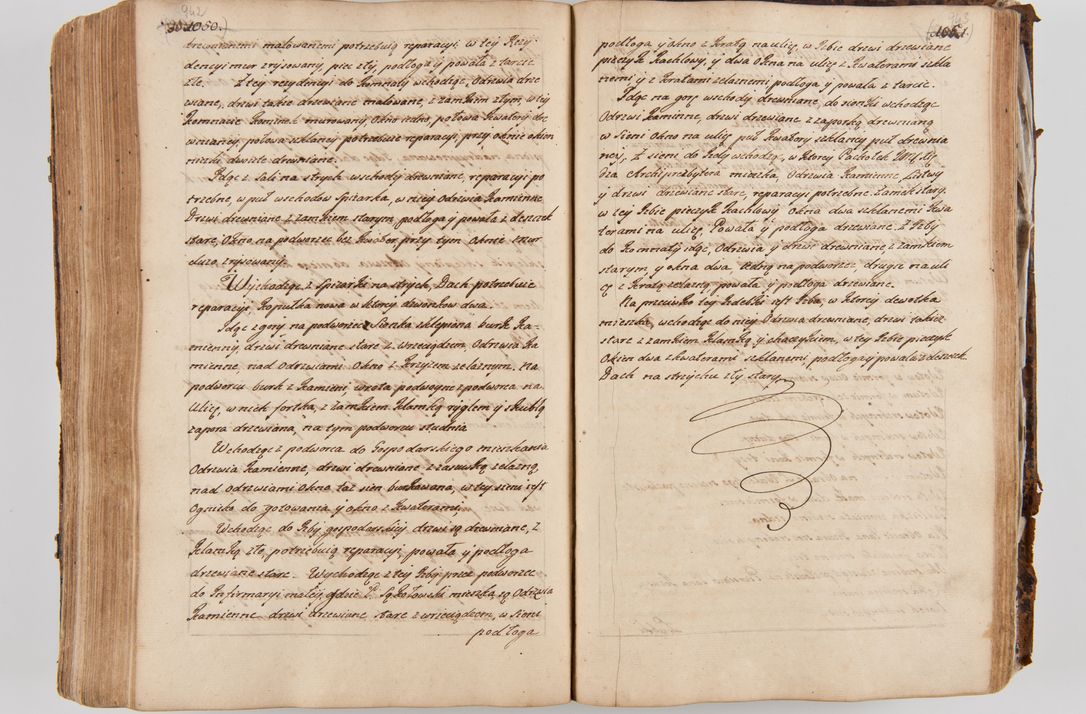 942
1060.
drzewianemi malowanemi potrzebuią reparacyi, w tey Rezy
dencyi mur zrysowany, piec zły, podłoga y powała z tarcic
złe. Z tey rezydencyi do Komnaty wchodząc, Odrzwia drze
wiane, drzwi także drzewiane malowane, z zamkiem złym, w tey
Komnacie Komin murowany, Okno iedno, połowa Kwatery drze
wnianey, połowa szklaney potrzebuie reparacyi, przy oknie okien
niczki dwoiste drewniane.
Idąc z Sali na strych wschody drewniane, reparacyi po
trzebne, w puł wschodow Spiżarka, w niey Odrzwia Kamienne
Drzwi drewniane z zamkiem starym, podłoga y powała z deszczek
stare, Okno na podworze bez Kwater, przy tym Oknie mur
dużo zrysowany.
Wychodząc z Spiżarki na strych, Dach potrzebuie
reparacyi, Kopułka nowa w ktorey dzwonkow dwa.
Idąc z gory na podworze Sionka sklepiona bruk Ka-
mienny, drzwi drewniane stare z wrzeciądzem, Odrzwia Ka
mienne, nad Odrzwiami Okno z Krzyżem żelaznym. Na
podworcu bruk z Kamieni wrota podwoyne z podworca na
Ulicę, w nich fortka, z Zamkiem Klamką ryglem y Skublą
zapora drzewiana, na tym podworcu studnia
Wchodząc z podworca do Gospodarskiego mieszkania
Odrzwia Kamienne, drzwi drewniane z zasuwką żelazną,
nad Odrzwiami Okno taż sień brukowana, w tey sieni iest
Ognisko do gotowania, y okno z Kwaterami.
Wchodząc do Izby gospodarskiey drzwi są drewniane, z
Klamką złe, potrzebuią reparacyi, powała y podłoga
drzewiane stare. Wychodząc z tey Izby przez podworze
do Infirmaryi małey, gdzie mieszka, są Odrzwia
Kamienne drzwi drzewiane stare z wrzeciądzem, w Sieni
podłoga
943
1061.
podłoga y okno z Kratą na ulicę, w Izbie drzwi drzewiane
piecyk Kachlowy, y dwa Okna na ulicę z Kwaterami szkla
nemi y z Kratami żelaznemi podłoga y powała z tarcic.
Idąc na gorę wschody drewniane, do sionki wchodząc
Odrzwi kaminne, drzwi drzewiane z zaporką drewnianą
w Sieni Okno na ulicę puł Kwatery szklaney puł drewnia
ney, Z sieni do Izdy wchodząc, w ktorey Pachołek
dza Archiprezbytera mieszka, Odrzwia Kamienne
y drzwi drzewiane stare, reparacyi potrzebne. Zamek stary,
w tey Izbie piecyk Kachlowy Okna dwa szklanemi Kwa
terami na ulicę, Powała y podłoga drzewiane. Z Izby
do Komnaty idąc, Odrzwia y drzwi drewniane z zamkiem
starym, y okna dwa iedno na podworze, drugie na uli
cę z Kratą żelazną, powała y podłoga drzewiane.
Na przeciwko tey Izdebki iest Izba, w ktorey dewotka
mieszka, wchodząc do niey Odrzwia drewniane, drzwi takież
stare z zamkiem Klamką y chaczykiem, w tey Izbie piecyk
Okien dwa z kwaterami szklanemi, podłoga y powała z deszczek
Dach na strychu zły stary.